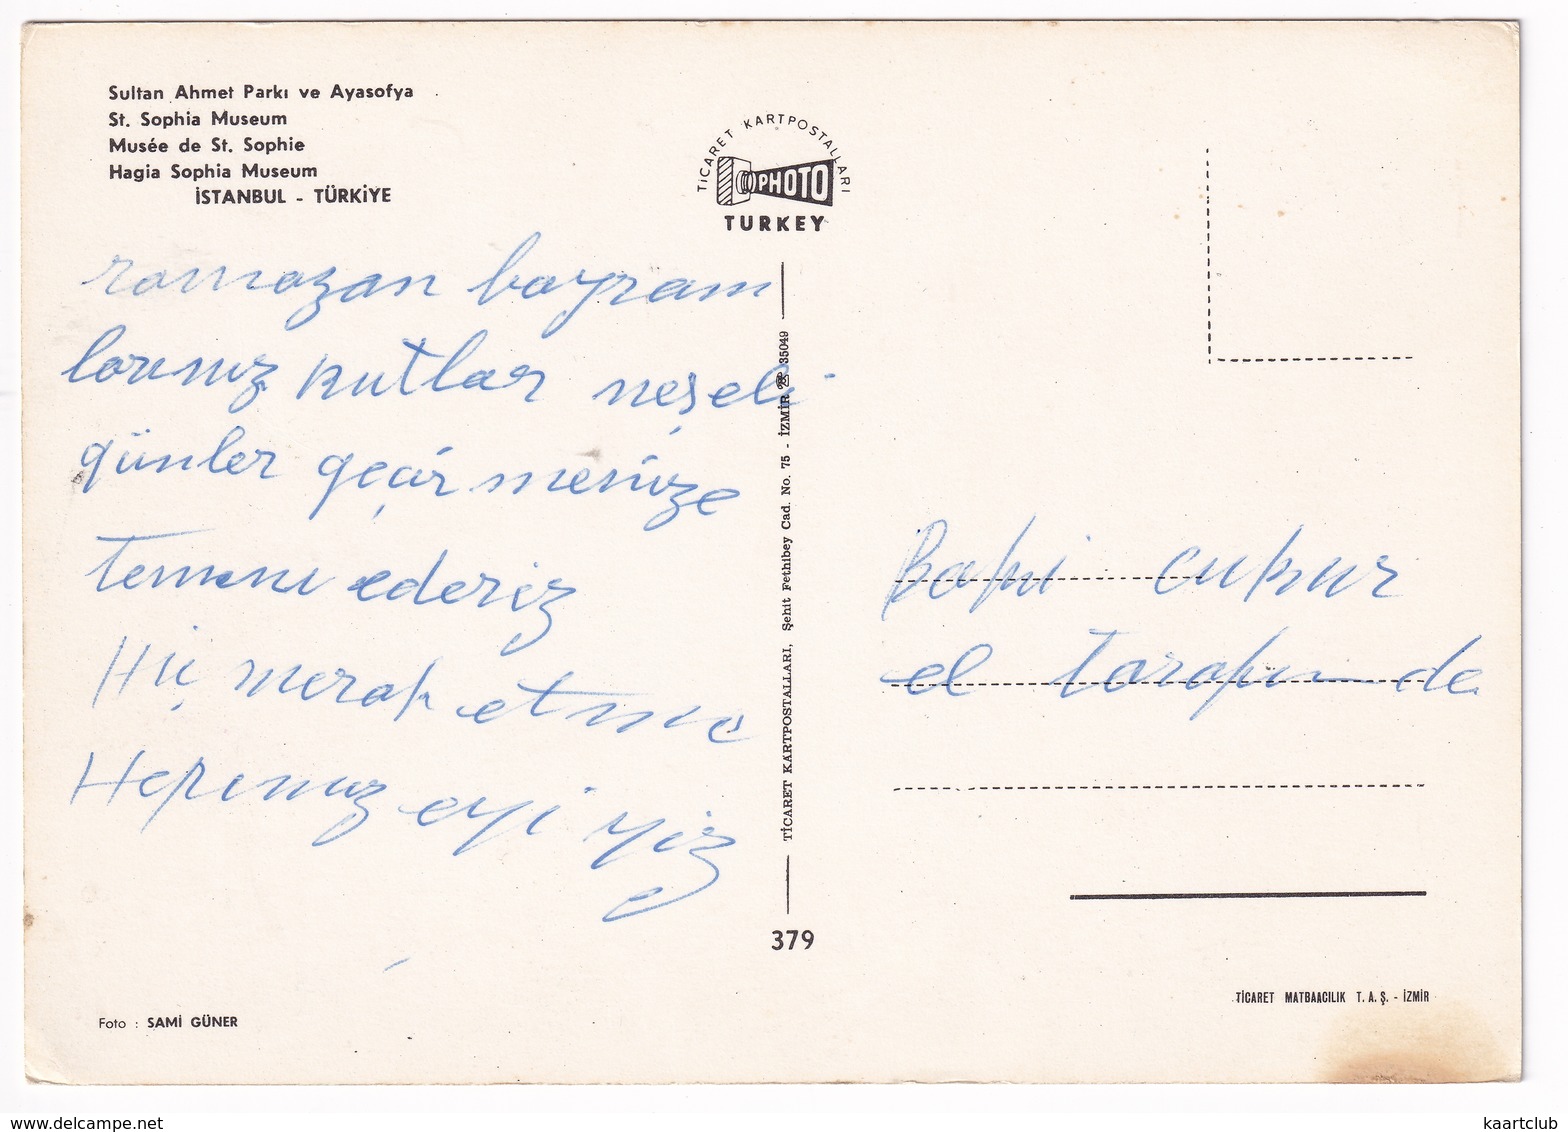 Sultan Ahmet Parkı ve Ayasofya
St. Sophia Museum
Musée de St. Sophie
Hagia Sophia Museum
İSTANBUL - TÜRKİYE
TİCARET KARTPOSTALLARI
PHOTO
TURKEY
ramazan bayram
larınız kutlar neşeli
günler geçir menize
temeni ederiz
Hiç merak etme
Hepımız eyi yiz
TİCARET KARTPOSTALLARI, Şehit Fethibey Cad. No. 75 - İZMİR ☎ 35049
Baki cukur
el tarafın de
379
Foto : SAMİ GÜNER
TİCARET MATBAACILIK T. A. Ş. - İZMİR
kaartclub
www.delcampe.net